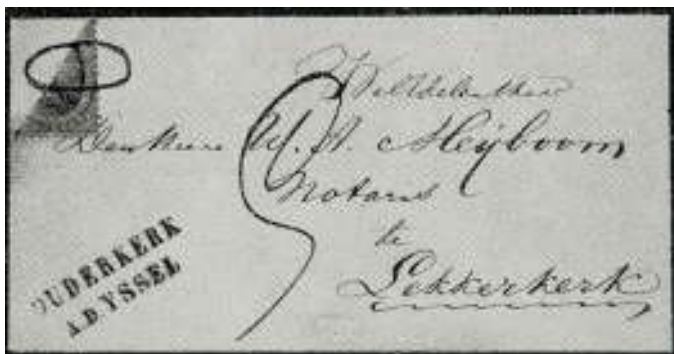 WelEdelenHeer
Den Heere W. A. Meijboom
Notaris
te
Lekkerkerk
5
OUDERKERK
A.D YSSEL